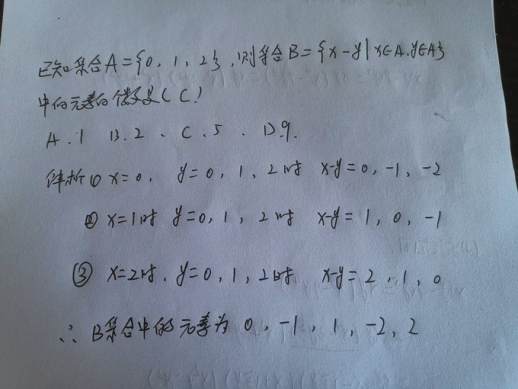 已知集合A={0,1,2},则集合B={x-y|x∈A,y∈A}
中的元素的个数是(C)
A.1 B.2、C.5、D.9.
解析① x=0, y=0,1,2时 x-y=0,-1,-2
② x=1时 y=0,1,2时 x-y=1,0,-1
③ x=2时,y=0,1,2时 x-y=2,1,0
∴B集合中的元素为0,-1,1,-2,2